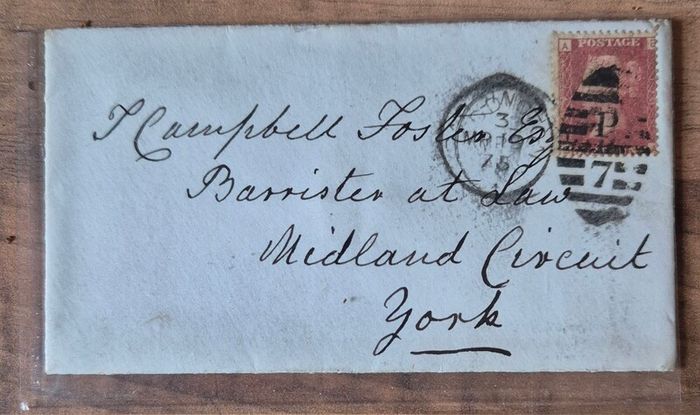 T Campbell Foster Esq
Barrister at Law
Midland Circuit
York
A POSTAGE
3
75
P
7